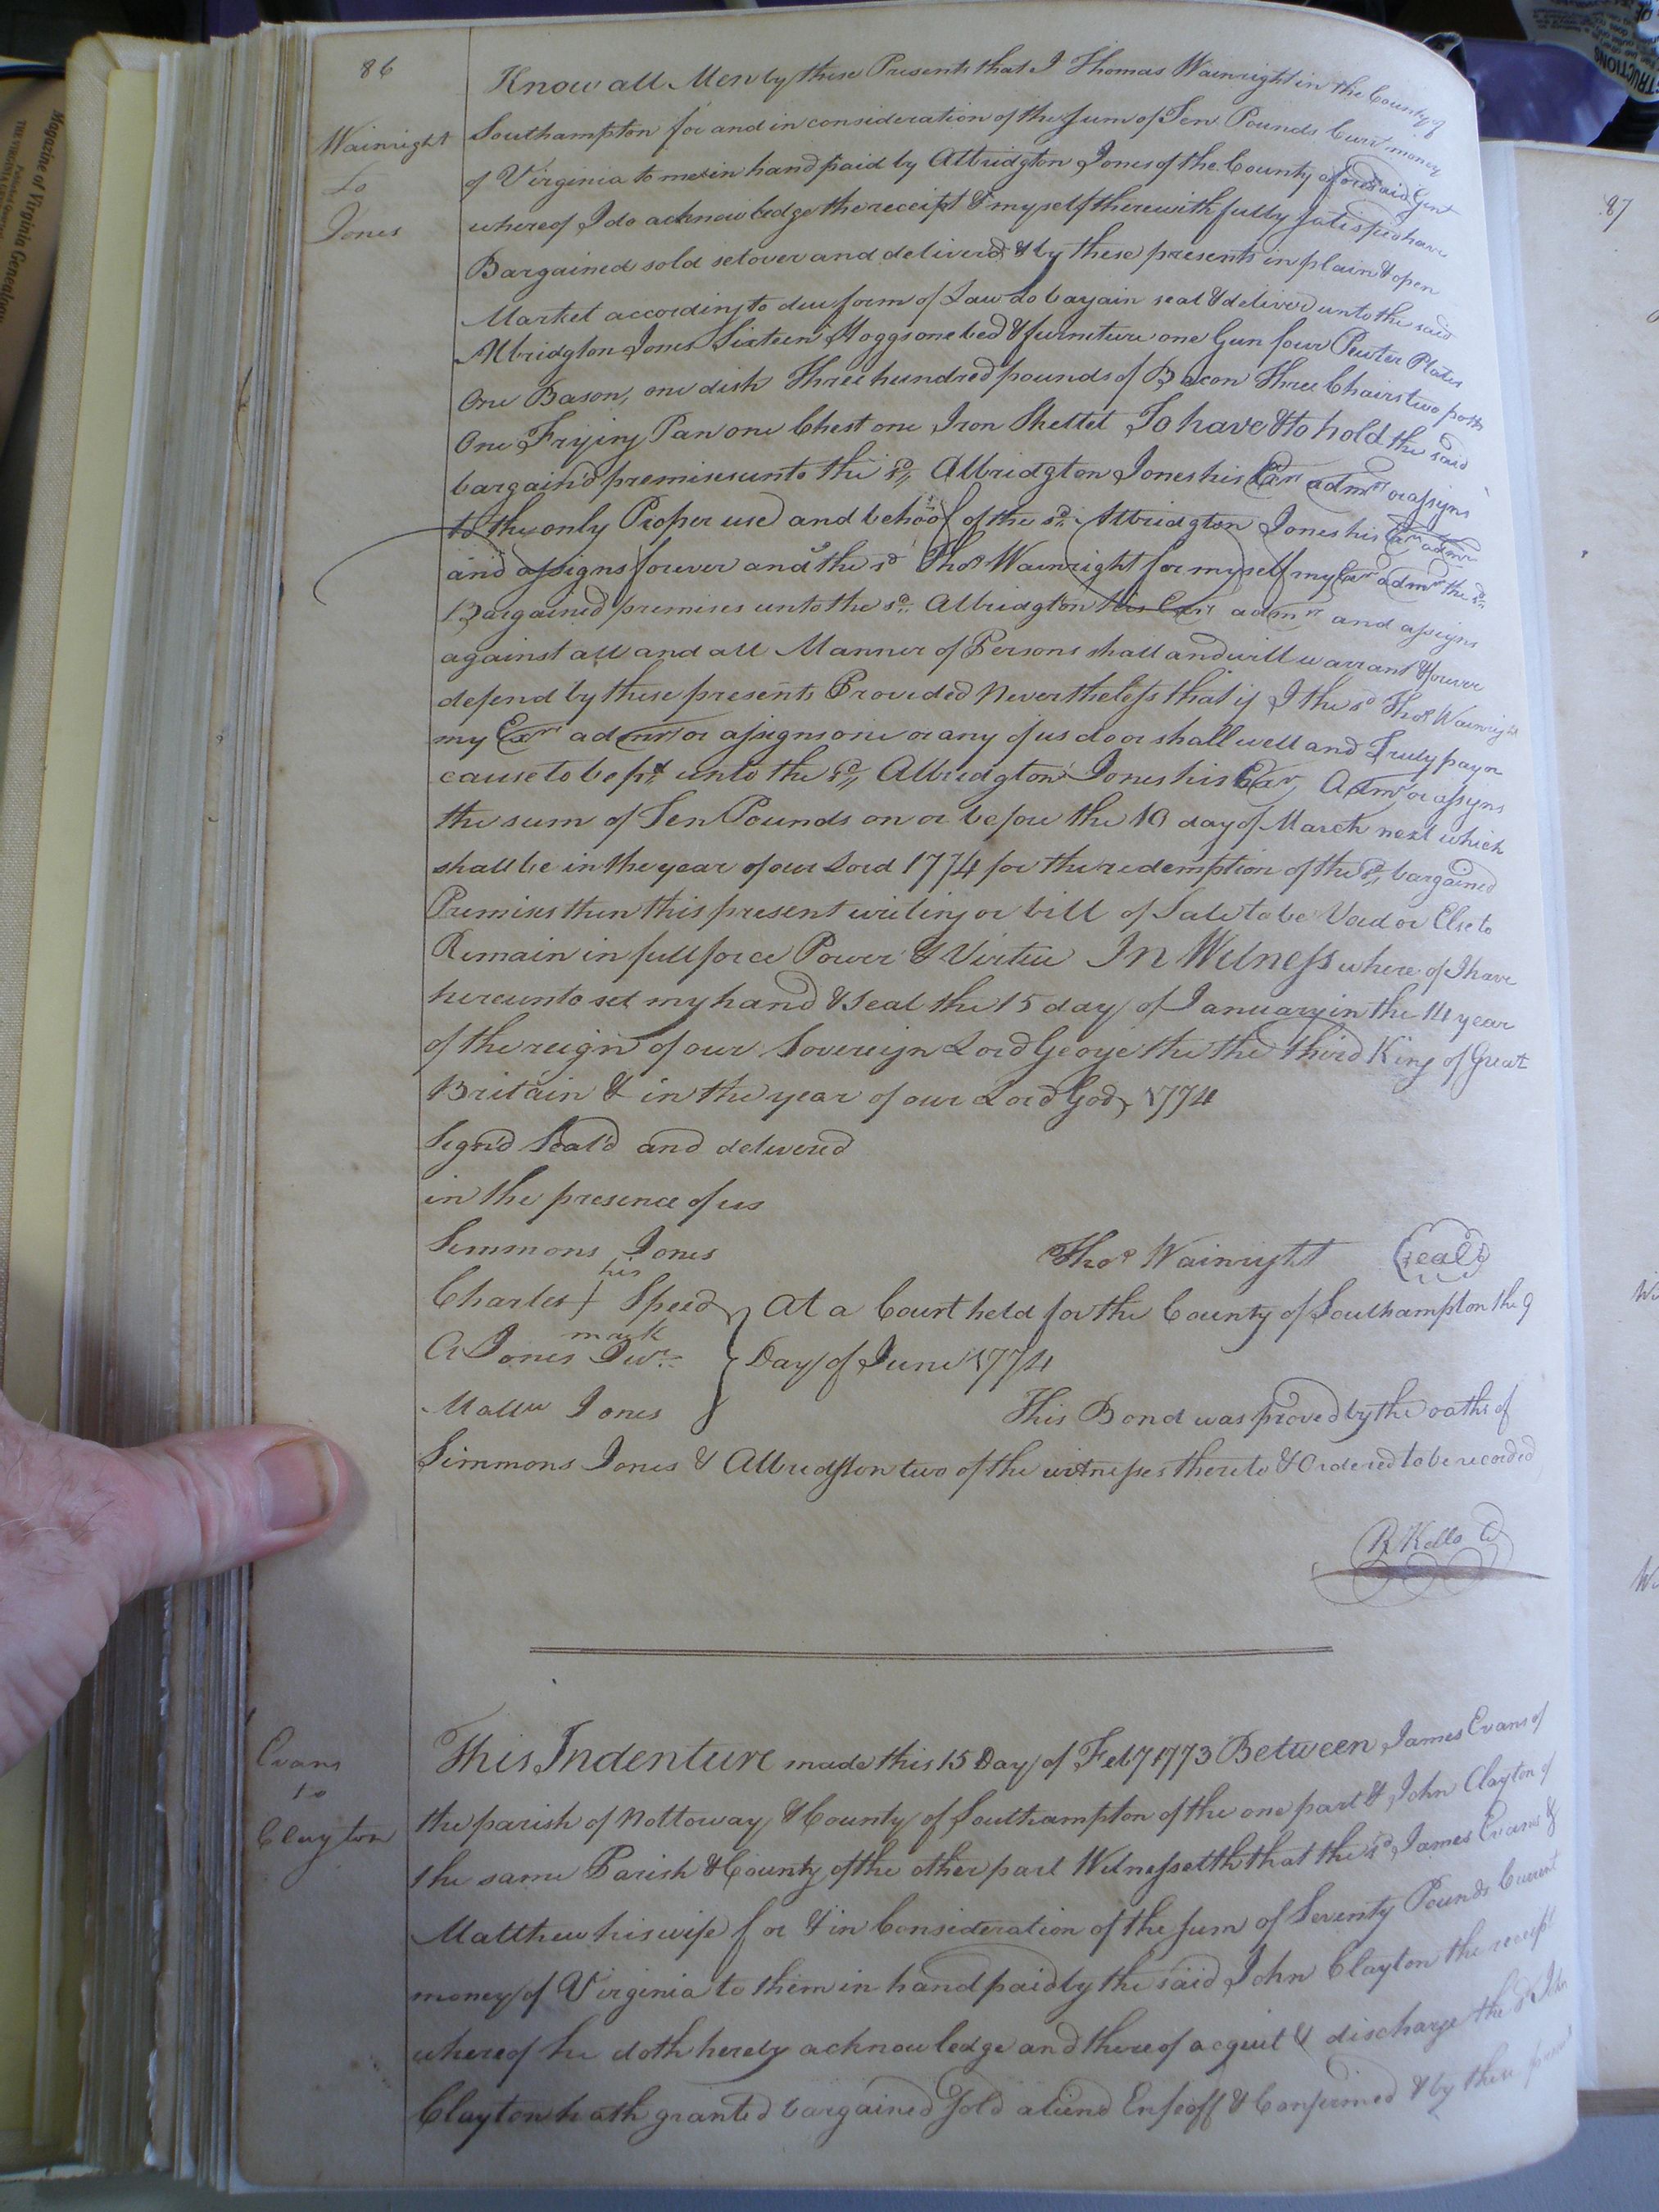 86
Wainright
to
Jones
Know all Men by these Presents that I Thomas Wainright in the County of
Southampton for and in consideration of the sum of Ten Pounds Curr money
of Virginia to me in hand paid by Albridgton Jones of the County aforesaid Gent
whereof I do acknowledge the receipt & myself therewith fully satisfied have
Bargained sold set over and deliverd & by these presents in plain & open
Market according to due form of Law do bargain seal & deliver unto the said
Albridgton Jones Sixteen Hoggs one bed & furneture one Gun four Pewter Plates
One Bason, one dish Three hundred pounds of Bacon Three Chairs two potts
One Frying Pan one Chest one Iron Skettet To have & to hold the said
bargain'd premises unto the sd Albridgton Jones his Exr admr or assigns
to the only Proper use and behoof of the sd Albridgton Jones his Exr admr
and assigns forever and the sd Thos Wainright for myself my Exr admr the sd
Bargained premises unto the sd Albridgton his Exr admr and assigns
against all and all Manner of Persons shall and will warrant & forever
defend by these presents Provided Nevertheless that if I the sd Thos Wainright
my Exr admr or assigns one or any of us do or shall well and Truly pay or
cause to be pd unto the sd Albridgton Jones his Exr, Admr or assigns
the sum of Ten Pounds on or before the 10 day of March next which
shall be in the year of our Lord 1774 for the redemption of the sd bargained
Premises then this present writing or bill of Sale to be Void or Else to
Remain in full force Power & Virtue In Witness where of I have
hereunto set my hand & Seal the 15 day of January in the 14 year
of the reign of our Sovereign Lord George the the third King of Great
Britain & in the year of our Lord God, 1774
Sign'd Seal'd and delivered
in the presence of us
Simmons Jones
Thos Wainright (seal)
his
Charles + Speed } At a Court held for the County of Southampton the 9
mark
A Jones Junr. } Day of June 1774
Mattw Jones
This Bond was proved by the oaths of
Simmons Jones & Albridgton two of the witnesses thereto & Ordered to be recorded
R Kello
Evans
to
Clayton
This Indenture made this 15 Day of Feby 1773 Between James Evans of
the parish of Nottoway & County of Southampton of the one part & John Clayton of
the same Parish & County of the other part Witnesseth that the sd James Evans &
Matthew his wife for & in Consideration of the sum of Seventy Pounds Current
money of Virginia to them in hand paid by the said John Clayton the receipt
whereof he doth hereby acknowledge and thereof acquit & discharge the sd John
Clayton hath granted bargained sold aliend Enfeoff & Confirmed & by these
87
Magazine of Virginia Genealogy